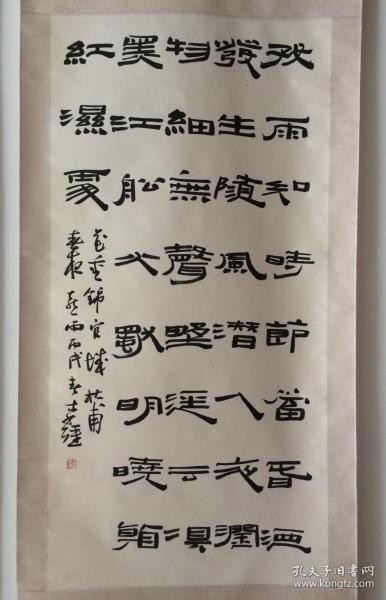 好雨知時節當春迺
發生隨風潛入夜潤
物細無聲野逕云俱
黑江舩火獨明曉看
紅濕處
花重錦官城 杜甫
春夜喜雨 丙戌春
孔夫子旧书网
kongfz.com